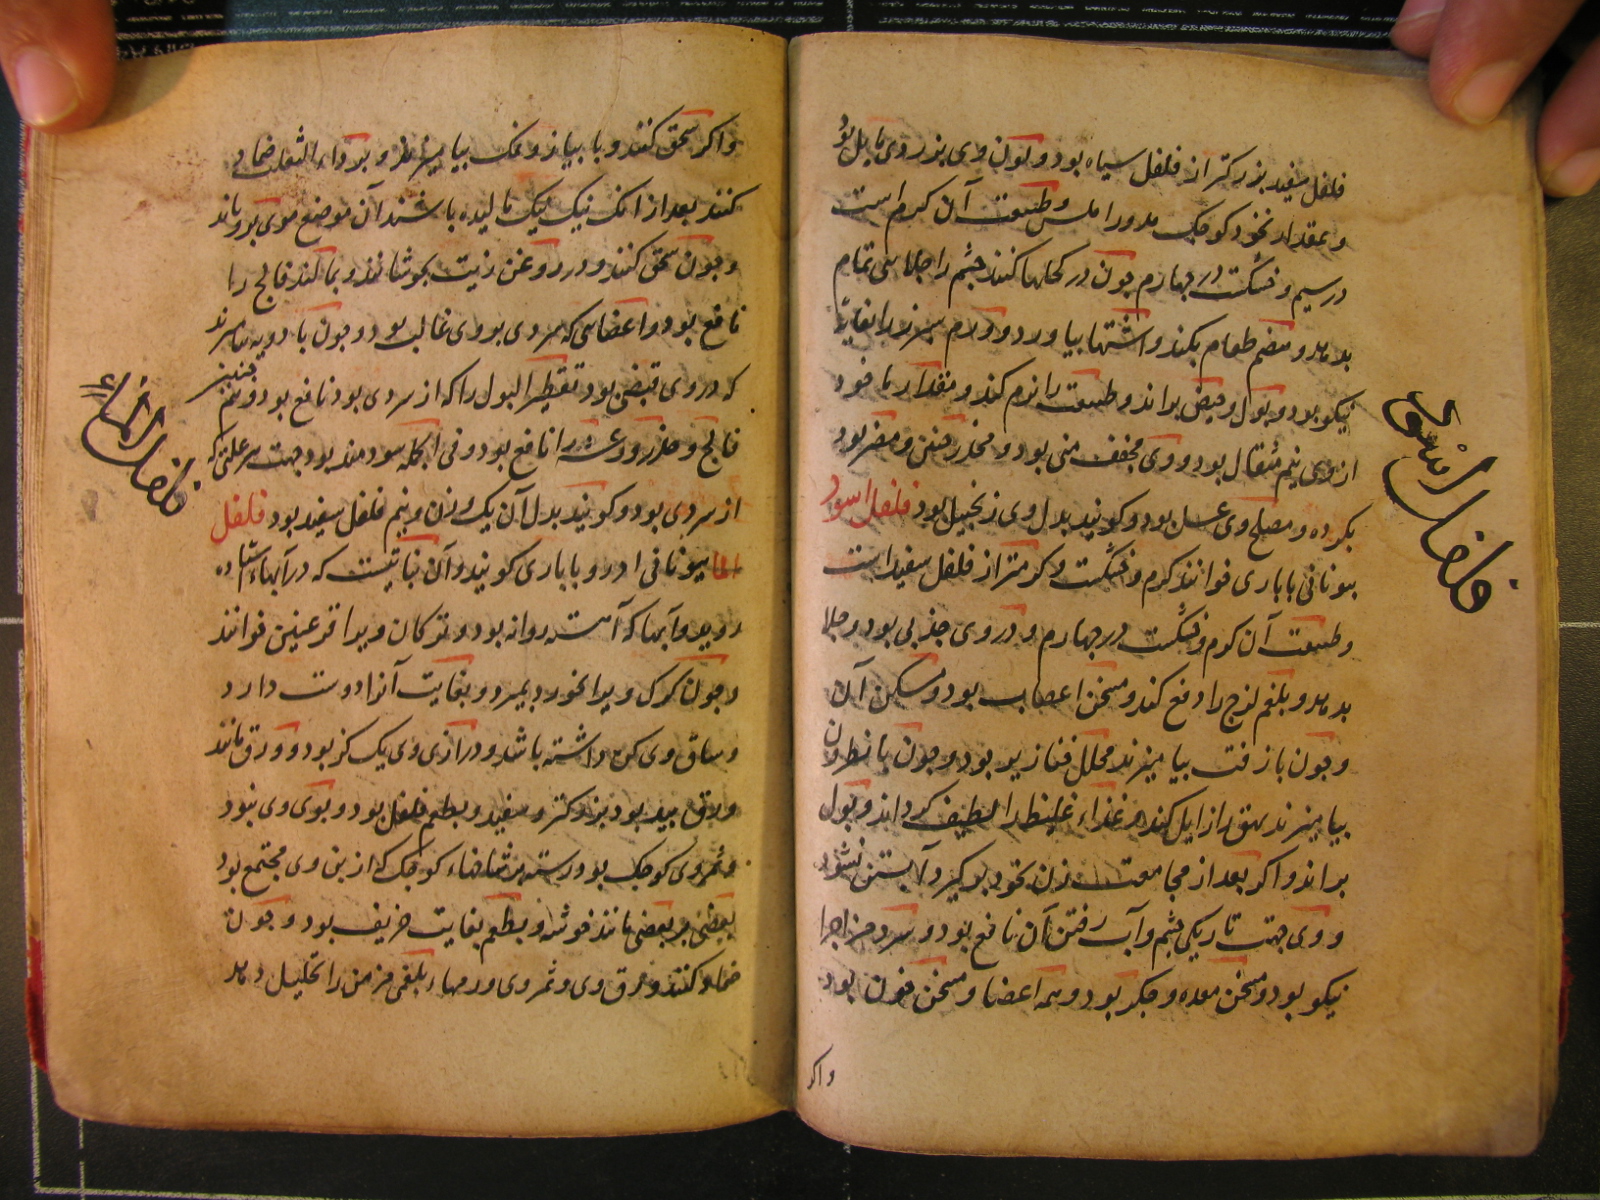 فلفل سفید بزرکتر از فلفل سیاه بود و لون وی بزردی مایل بود
و بمقدار نخود کوچک مدور املس و طبیعت آن کرم است
در سیم و خشکست در چهارم چون در کحلها کنند چشم را جلایی تمام
بدهد و هضم طعام بکند و اشتها بیاورد و ورم سپرز را بغایة
نیکو بود و بول و حیض براند و طبیعت را نرم کند و مقدار ماخود
از وی نیم مثقال بود و وی مجفف منی بود و مخدر جنین و مضر بود
بکرده و مصلح وی عسل بود و کویند بدل وی زنجبیل بود فلفل اسود
بیونانی باباری خوانند کرم و خشکست و کرمتر از فلفل سفید است
و طبیعت آن کرم و خشکست در چهارم و در وی جذبی بود و جلا
بدهد و بلغم لزج را دفع کند و مسخن اعصاب بود و مسکن آن
و چون بازفت بیامیزند محلل خنازیر بود و چون بانطرون
بیامیزند بهق را زایل کند و غذاء غلیظ را لطیف کرداند و بول
براند و اکر بعد از مجامعت زن بخود برکیرد آبستن نشود
و وی جهت تاریکی چشم و آب رفتن آن نافع بود و سرد مزاجرا
نیکو بود و مسخن معده و جکر بود و همه اعضا و مسخن خون بود
و اکر
فلفل اسود
و اکر سحق کنند و با پیاز و نمک بیامیزند و بر داء الثعلب ضماد
کنند بعد از انک نیک نیک مالیده باشند آن موضع موی برویاند
و چون سحق کنند و در روغن زیت بجوشانند و بمالند فالج را
نافع بود و اعضایی که سردی بر وی غالب بود و چون با دویه سازند
که در وی قبضی بود تقطیر البول را که از سردی بود نافع بود و هم چنین
فالج و خدر و رعشه را نافع بود و فی الجمله سودمند بود جهت هر علتی که
از سردی بود و کویند بدل آن یک وزن و نیم فلفل سفید بود فلفل
الما بیونانی ادرو باباری کویند و آن نباتیست که در آبهاء استاده
روید و آبها که آهسته روانه بود و ترکان ویرا قرعنین خوانند
و چون کرک ویرا بخورد بمیرد و بغایت آنرا دوست دارد
و ساق وی کره داشته باشد و درازی وی یک کز بود و ورق مانند
ورق بید بود بزرکتر و سفید و بطعم فلفل بود و بوی وی نبود
و ثمر وی کوچک بود رسته بر شاخهاء کوچک که از بن وی مجتمع بود
بعضی بر بعضی مانند خوشه و بطعم بغایت حریف بود و چون
ضماد کنند ورق وی و ثمر وی ورمهاء بلغمی مزمن را تحلیل دهد
فلفل الماء